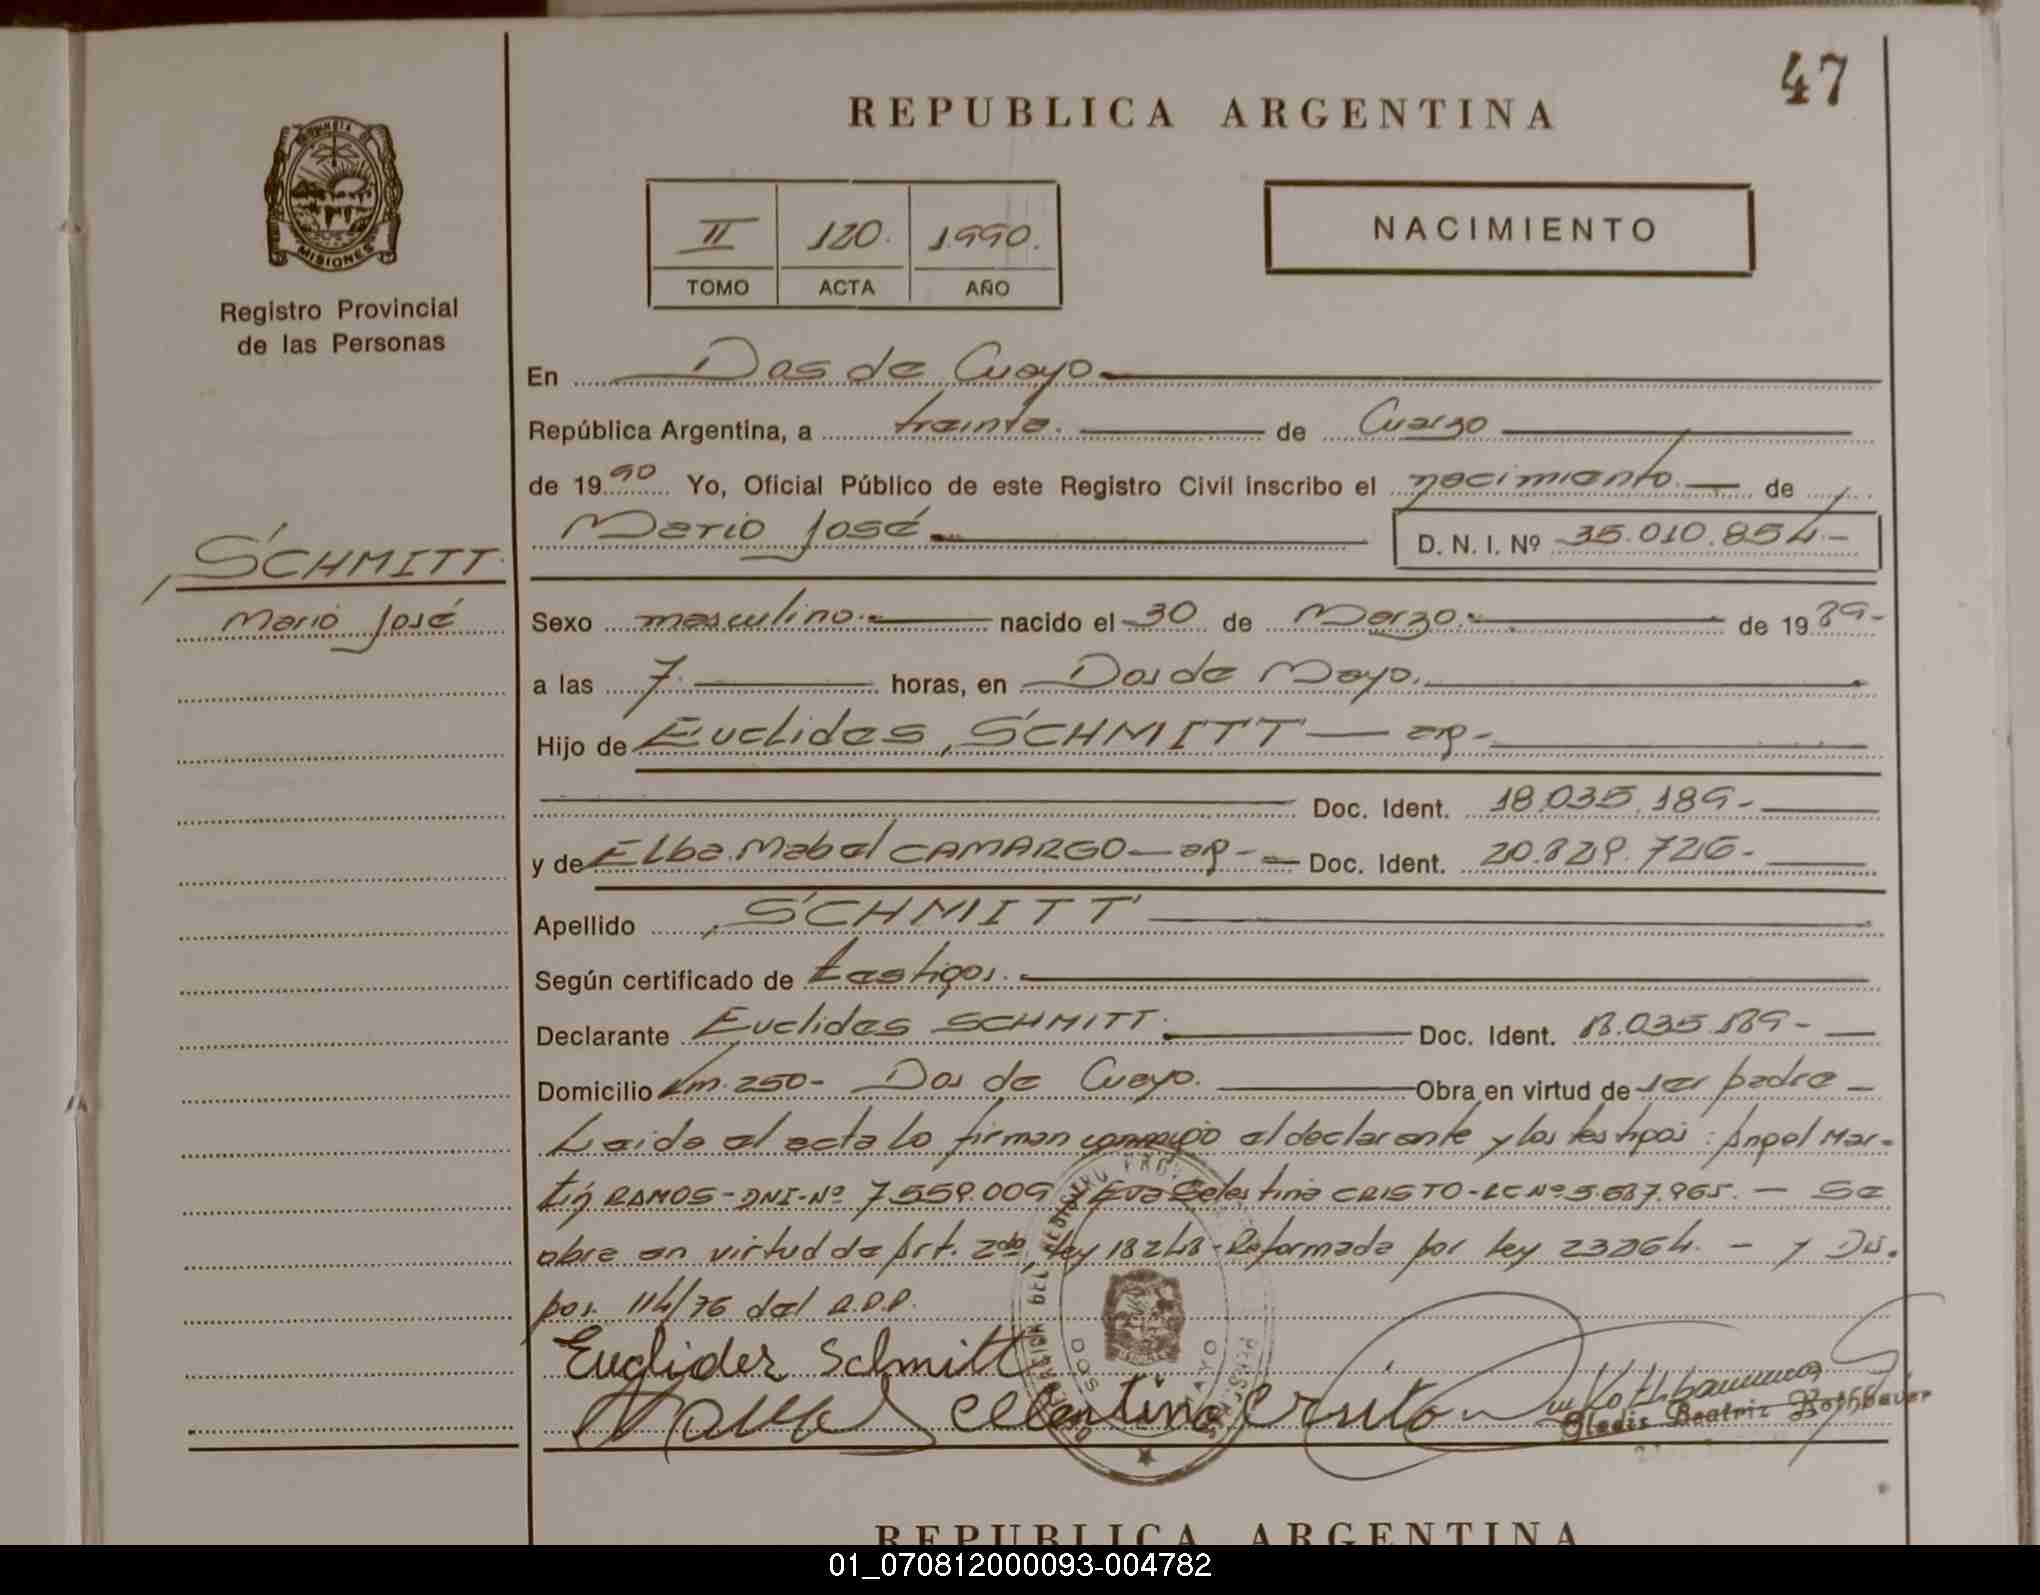 47
REPUBLICA ARGENTINA
PROVINCIA DE
MISIONES
Registro Provincial
de las Personas
II 120. 1990.
TOMO ACTA AÑO
NACIMIENTO
En Dos de Mayo
República Argentina, a treinta. de Marzo
de 1990 Yo, Oficial Público de este Registro Civil inscribo el nacimiento de
Mario José D. N. I. Nº 35.010.854.-
SCHMITT.
Mario José
Sexo masculino. nacido el 30 de Marzo. de 1989-
a las 7. horas, en Dos de Mayo.
Hijo de Euclides SCHMITT — ap -
Doc. Ident. 18.035.189-
y de Elba Mabel CAMARGO — ap - Doc. Ident. 20.829.726-
Apellido SCHMITT
Según certificado de testigos.
Declarante Euclides SCHMITT. Doc. Ident. 18.035.189-
Domicilio Km. 250- Dos de Mayo. Obra en virtud de ser padre -
Leida el acta lo firman conmigo el declarante y los testigos: Angel Mar-
tín RAMOS-DNI-Nº 7.559.009 y Eva Celestina CRISTO-LC Nº 5.687.965. - Se
obra en virtud de Art. 2do. ley 18248-Reformada por ley 23264. - y Dis.
pos. 114/76 del R.P.P.
Euglider Schmitt
Celentina Cristo
Gladis Beatriz Rothbauer
DOS MAYO
REPUBLICA ARGENTINA
01_070812000093-004782